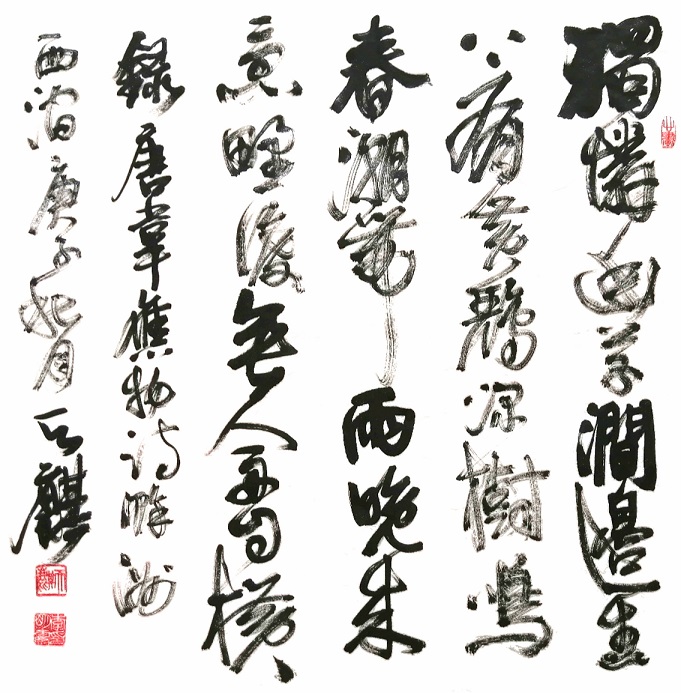 獨憐幽草澗邊生
上有黃鸝深樹鳴
春潮帶雨晚来
急野渡無人舟自橫
錄唐韋應物诗滁州
西澗庚子如月石麒